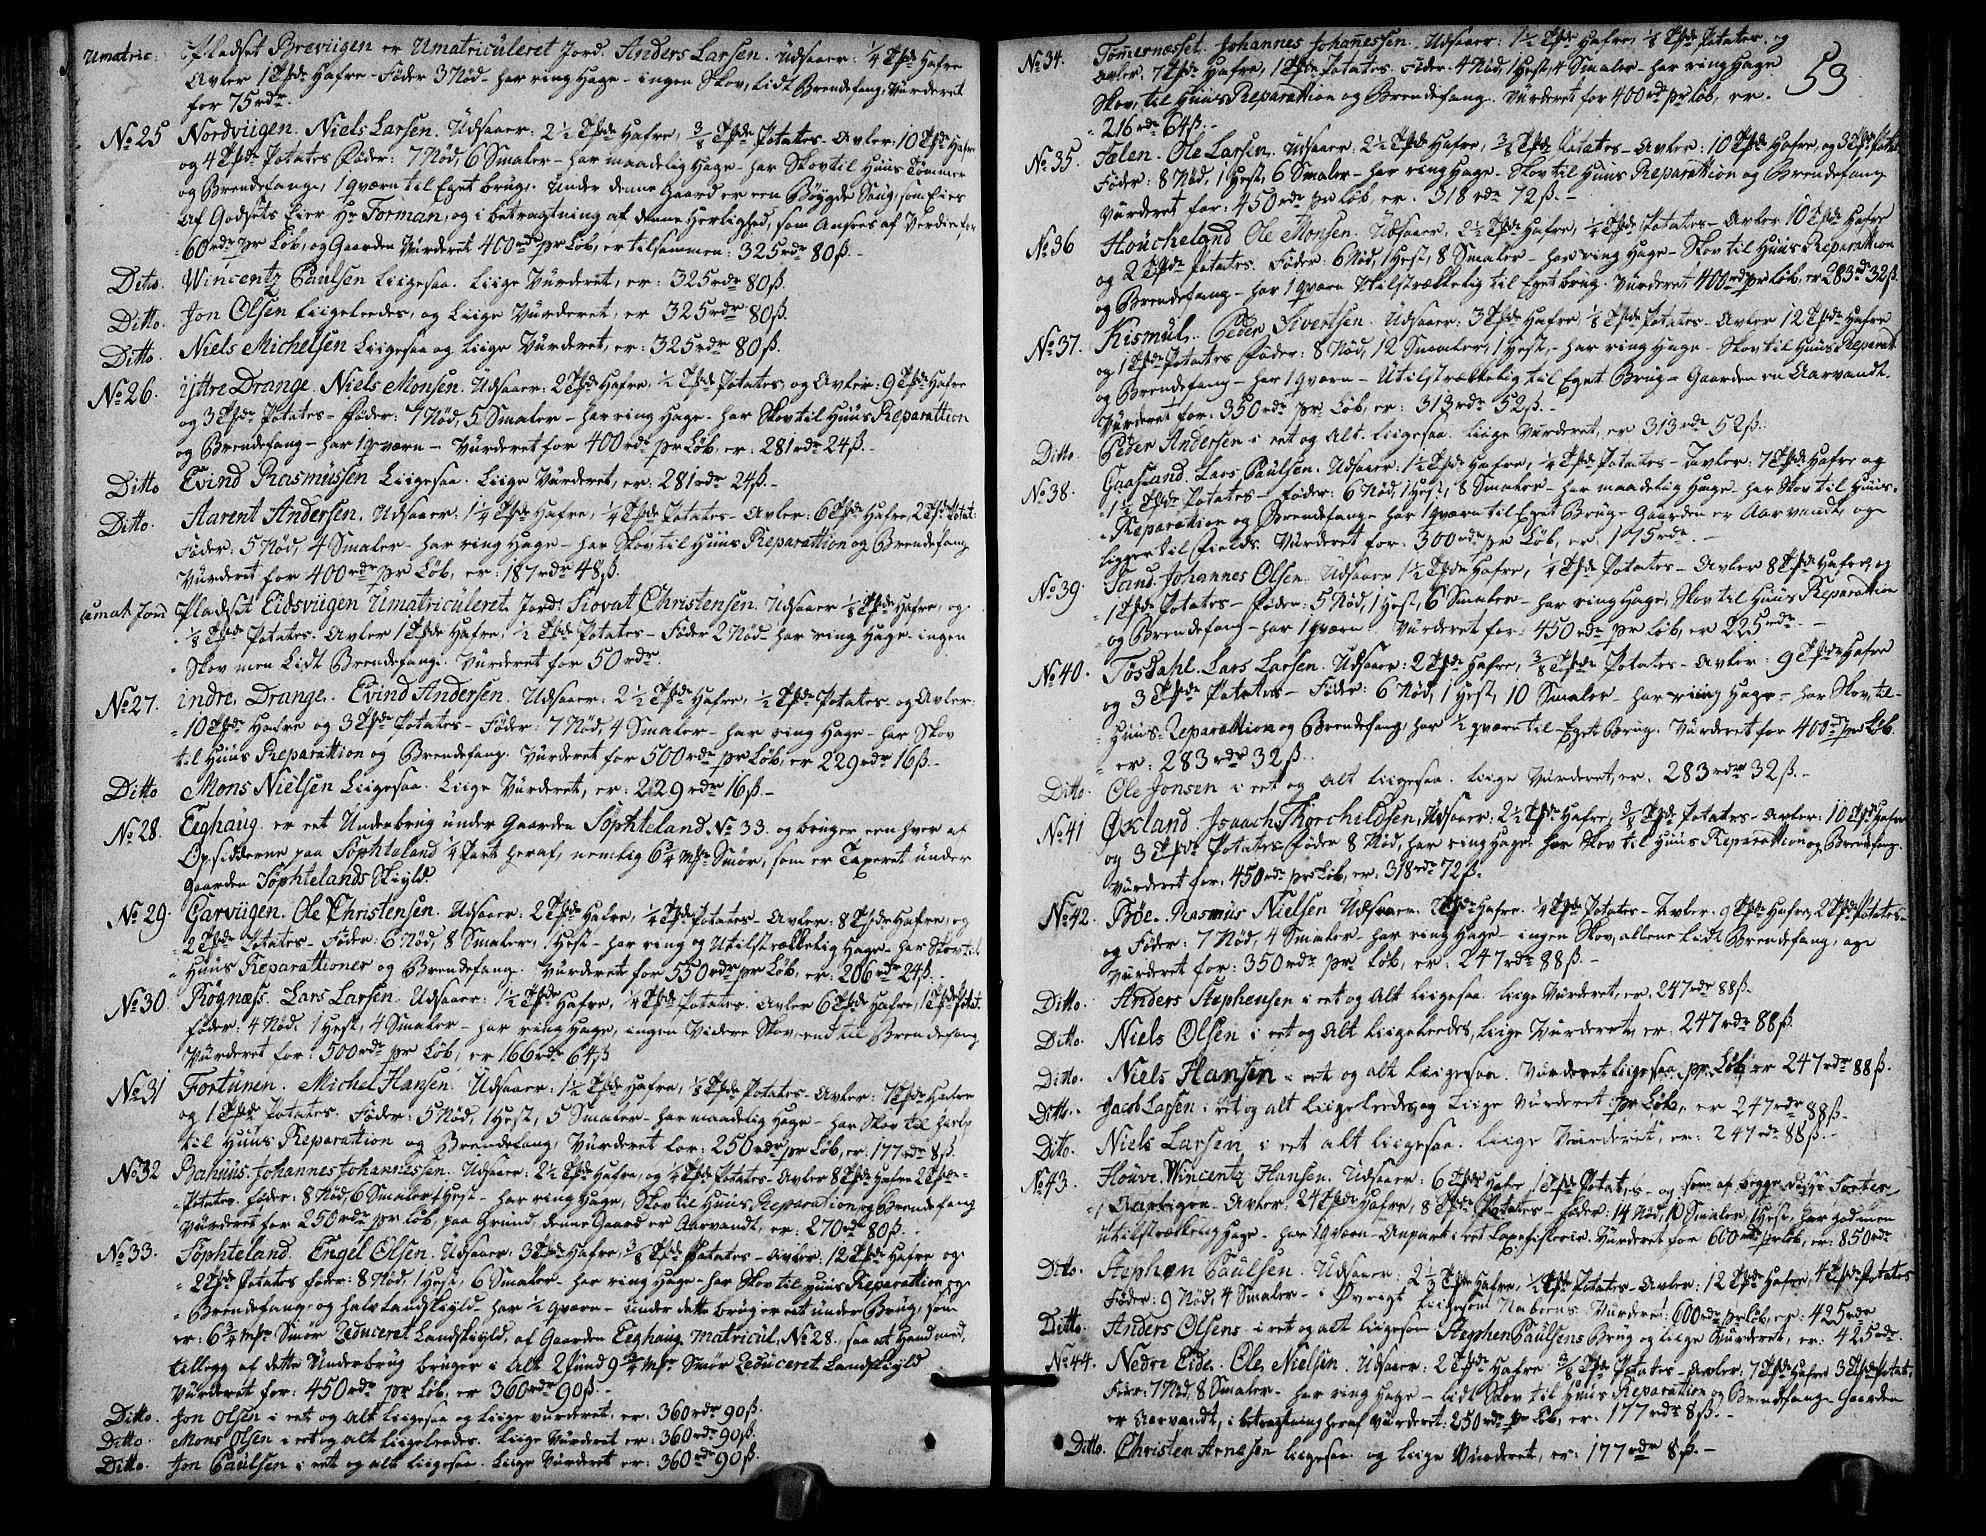 Umatric: Pladset Breviigen er Umatriculeret Jord. Anders Larsen. Udsaaer: 1/4 Tønde Hafre
Avler 1 Tde Hafre - Føder 3 Nød - har ring Hage - ingen Skov, lidt Brendefang, Vurderet
for 75 rdr.
No 25 Nordviigen. Niels Larsen. Udsaaer: 2 1/2 Tde Hafre, 3/8 Tde Potates - Avler: 10 Tde Hafre
og 4 Tde Potates Føder: 7 Nød, 6 Smaler - har maadelig Hage - har Skov til Huus Tømmer
og Brendefang, 1 qværn til Eget brug. Under denne Gaard er een Bøygde Saug, som Eies
af Godsets Eier Hr Forman, og i betragtning af denne Herlighed, som Ansees af Verdie for
60 rdr pr Løb, og Gaarden Vurderet 400 rdr pr Løb, er tilsammen: 325 rdr 80 ß. -
Ditto. Wincentz Paulsen Liigesaa. Liige Vurderet, er: 325 rdr 80 ß.
Ditto. Jon Olsen Liigeleedes, og Liige Vurderet, er 325 rdr 80 ß.
Ditto. Niels Michelsen Liigesaa og Liige Vurderet, er: 325 rdr 80 ß.
No 26. ijttre Drange. Niels Monsen. Udsaaer: 2 Tde Hafre, 1/2 Tde Potates, og Avler: 9 Tde Hafre
og 3 Tde Potates - Føder: 7 Nød, 5 Smaler - har ring Hage - har Skov til Huus Reparattion
og Brendefang - har 1 qværn - Vurderet for 400 rdr pr Løb, er: 281 rdr 24 ß. -
Ditto Evind Rasmussen Liigesaa. Liige Vurderet, er: 281 rdr 24 ß. -
Ditto. Aarent Andersen. Udsaaer: 1 1/4 Tde Hafre, 1/4 Tde Potates - Avler: 6 Tde Hafre, 2 Tde Potat:
Føder: 5 Nød, 4 Smaler - har ring Hage - har Skov til Huus Reparattion og Brendefang
Vurderet for 400 rdr pr Løb, er: 187 rdr 48 ß.
umat: Jord Pladset Eidsviigen Umatriculeret Jord: Siovat Christensen. Udsaaer 1/8 Tde Hafre, og
1/8 Tde Potates. Avler 1 Tde Hafre, 1/2 Tde Potates - Føder 2 Nød - har ring Hage - ingen
Skov men Lidt Brendefang. Vurderet for 50 rdr.
No 27. indre Drange. Evind Andersen. Udsaaer: 2 1/2 Tde Hafre, 1/2 Tde Potates - og Avler:
10 Tde Hafre og 3 Tde Potates - Føder: 7 Nød, 4 Smaler - har ring Hage - har Skov
til Huus Reparattion og Brendefang. Vurderet for 500 rdr pr Løb, er 229 rdr 16 ß. -
Ditto Mons Nielsen Liigesaa. Liige Vurderet, er: 229 rdr 16 ß. -
No 28. Eeghaug er eet Underbrug under Gaarden Søphteland No 33. og bruger een hver af
Opsidderne paa Søphteland 1/4 Part heraf, nemlig 6 3/4 Mk Smør, som er Taxeret under
Gaarden Søphtelands Skyld.
No 29. Garviigen. Ole Christensen. Udsaaer: 2 Tde Hafre, 1/4 Tde Potates - Avler: 8 Tde Hafre, og
2 Tde Potates - Føder: 6 Nød, 8 Smaler, 1 Hest - har ring og Utilstrækkelig Hage - har Skov til
Huus Reparattioner og Brendefang. Vurderet for 550 rdr pr Løb, er: 206 rdr 24 ß. -
No 30. Røgnæss. Lars Larsen. Udsaaer: 1 1/2 Tde Hafre, 1/4 Tde Potates. Avler 6 Tde Hafre, 1 Tde Potat.
Føder: 4 Nød, 1 Hest, 4 Smaler - har ring Hage, ingen Videre Skov, end til Brendefang
Vurderet for: 500 rdr pr Løb, er 166 rdr 64 ß
No 31 Fortunen. Michel Hansen. Udsaaer: 1 1/2 Tde Hafre, 1/8 Tde Potates - Avler: 7 Tde Hafre
og 1 Tde Potates. Føder: 5 Nød, 1 Hest, 5 Smaler - har maadelig Hage - har Skov til
til Huus Reparation og Brendefang, Vurderet for: 250 rdr pr Løb, er: 177 rdr 8 ß.
No 32 Bahuus. Johannes Johannessen. Udsaaer: 2 1/2 Tde Hafre, og 1/4 Tde Potates - Avler 8 Tde Hafre 2 Tde
Potates. Føder: 8 Nød, 6 Smaler, 1 Hest - har ring Hage, Skov til Huus Reparation, og Brendefang
Vurderet for 250 rdr pr Løb, paa Grund, denne Gaard er Aarvandt, er: 270 rdr 80 ß. -
No 33. Søphteland. Engel Olsen. Udsaaer: 3 Tde Hafre, 3/8 Tde Potates - Avler: 12 Tde Hafre og
2 Tde Potates Føder: 8 Nød, 1 Hest, 6 Smaler - har ring Hage - har Skov til Huus Reparattion og
Brendefang, og halv Landskyld - har 1/2 qværn - under dette brug er eet under Brug, som
er: 6 3/4 Mk Smør Reduceret Landskyld, af Gaarden Eeghaug Matricul. No 28., saa at Hand med,
tillegg af dette Underbrug bruger i Alt 2 Pund 9 3/4 Mk Smør Reduceret Landskyld
Vurderet for: 450 rdr pr Løb, er 360 rdr 90 ß. -
Ditto. Jon Olsen i eet og Alt Liigesaa og Liige Vurderet, er: 360 rdr 90 ß.
Ditto. Mons Olsen i eet og alt Liigeleedes. Liige Vurderet er: 360 rdr 90 ß.
Ditto. Jon Paulsen i eet og alt Liigesaa. Liige Vurderet er: 360 rdr 90 ß.
53
No 34. Tømernæsset. Johannes Johanessen. Udsaaer: 1 1/2 Tde Hafre, 1/8 Tde Potates, og
Avler. 7 Tde Hafre, 1 Tde Potates. Føder. 4 Nød, 1 Hest, 4 Smaler - har ring Hage
Skov, til Huus Reparattion og Brendefang. Vurderet for 400 rdr pr Løb, er.
216 rdr 64 ß. -
No 35. Tælen. Ole Larsen. Udsaaer: 2 1/2 Tde Hafre, 3/8 Tde Potates - Avler: 10 Tde Hafre, og 3 Tde Potat
Føder: 8 Nød, 1 Hest, 6 Smaler - har ring Hage. Skov til Huus Reparattion og Brendefang
Vurderet for: 450 rdr pr Løb, er. 318 rdr 72 ß. -
No 36 Houcheland Ole Monsen. Udsaaer, 2 1/2 Tde Hafre, 1/4 Tde Potates - Avler 10 Tde Hafre
og 2 Tde Potates. Føder: 6 Nød, 1 Hest, 8 Smaler - har ring Hage - Skov til Huus Reparation
og Brendefang - har 1 qværn Utilstrækkelig til Eget brug. Vurderet 400 rdr pr Løb, er 283 rdr 32 ß.
No 37. Kismul. Peder Sivertsen. Udsaaer: 3 Tde Hafre, 1/8 Tde Potates - Avler 12 Tde Hafre
og 1 Tde Potates Føder: 8 Nød, 12 Smaler, 1 Hest, - har ring Hage - Skov til Huus Reparat:
og Brendefang - har 1 qværn - Utilstrækkelig til Eget Brug - Gaarden er Aarvandt.
Vurderet for: 350 rdr pr Løb, er: 313 rdr 52 ß. -
Ditto. Peder Andersen i eet og Alt. Liigesaa. Liige Vurderet, er 313 rdr 52 ß.
No 38. Gaasland. Lars Paulsen. Udsaaer: 1 1/2 Tde Hafre, 1/4 Tde Potates - Avler. 7 Tde Hafre og
1 1/2 Tde Potates - Føder: 6 Nød, 1 Hest, 8 Smaler - har maadelig Hage - har Skov til Huus
Reparattion og Brendefang - har 1 qværn til Eget Brug - Gaarden er Aarvandt, og
ligger til Fields. Vurderet for: 300 rdr pr Løb, er: 175 rdr. -
No 39. Sand. Johannes Olsen. Udsaaer 1 1/2 Tde Hafre, 1/4 Tde Potates - Avler 8 Tde Hafre, og
1 Tde Potates - Føder: 5 Nød, 1 Hest, 6 Smaler - har ring Hage, Skov til Huus Reparattion
og Brendefang - har 1 qværn Vurderet for: 450 rdr pr Løb, er 225 rdr. -
No 40. Tøsdahl. Lars Larsen. Udsaaer: 2 Tde Hafre, 3/8 Tde Potates - Avler: 9 Tde Hafre
og 3 Tde Potates - Føder: 6 Nød, 1 Hest, 10 Smaler - har ring Hage - har Skov til
Huus Reparattion og Brendefang, har 1/2 qværn til Eget Brug. Vurderet for 400 rdr pr Løb
er: 283 rdr 32 ß.
Ditto. Ole Jonsen i eet og alt Liigesaa. Liige Vurderet, er. 283 rdr 32 ß. -
No 41 Økland. Isaach Thorcheldsen, Udsaaer: 2 1/2 Tde Hafre, 3/8 Tde Potates - Avler: 10 Tde Hafre
og 3 Tde Potates. Føder 8 Nød, har ring Hage. har Skov til Huus Reparattion og Brendefang.
Vurderet for. 450 rdr pr Løb, er. 318 rdr 72 ß.
No 42. Bøe. Rasmus Nielsen Udsaaer. 2 Tde Hafre. 1/4 Tde Potates - Avler: 9 Tde Hafre, 2 Tde Potates -
og Føder: 7 Nød, 4 Smaler - har ring Hage - ingen Skov, allene Lidt Brendefang, og
Vurderet for: 350 rdr pr Løb, er: 247 rdr 88 ß. -
Ditto. Anders Stephensen i eet og Alt Liigesaa. Liige Vurderet, er. 247 rdr 88 ß. -
Ditto. Niels Olsen i eet og Alt Liigeleedes, Liige Vurderet, er: 247 rdr 88 ß.
Ditto. Niels Hansen i eet og alt Liigesaa. Vurderet Liigesaa pr Løb, er 247 rdr 88 ß.
Ditto. Jacob Larsen i eet og alt Liigeleedes, og Liige Vurderet pr Løb, er 247 rdr 88 ß. -
Ditto. Niels Larsen i eet alt Liigesaa. Liige Vurderet, er: 247 rdr 88 ß. -
No 43. Houve. Wincentz Hansen. Udsaaer: 6 Tde Hafre 1 Tde Potates - og som af begge disse Sorter
Aarligen - Avler. 24 Tde Hafre, 8 Tde Potates - Føder: 14 Nød, 10 Smaler, 1 Hest, har god men
utilstrækkelig Hage - har 1 qværn - Anpart i eet Laxefiskerie. Vurderet for 600 rdr pr Løb, er: 850 rdr
Ditto. Stephen Paulsen. Udsaaer: 2 1/3 Tde Hafre, 1/2 Tde Potates - Avler: 12 Tde Hafre, 4 Tde Potates
Føder: 9 Nød, 4 Smaler - i Øvrigt Liigesom Naboens. Vurderet: 600 rdr pr Løb, er: 425 rdr
Ditto. Anders Olsens i eet og alt Liigesom Stephen Paulsens Brug og Liige Vurderet, er: 425 rdr.
No 44. Nedre Eide. Ole Nielsen. Udsaaer: 2 Tde Hafre 3/8 Tde Potates - Avler: 7 Tde Hafre 3 Tde Potat.
Føder: 7 Nød, 8 Smaler - har ring Hage - Lidt Skov til Huus Reparation og Brendefang - Gaarden
er Aarvandt, i betragtning heraf Vurderet: 250 rdr pr Løb, er: 177 rdr 8 ß. -
Ditto. Christen Arnesen Liigesaa og Liige Vurderet, er: 177 rdr 8 ß. -